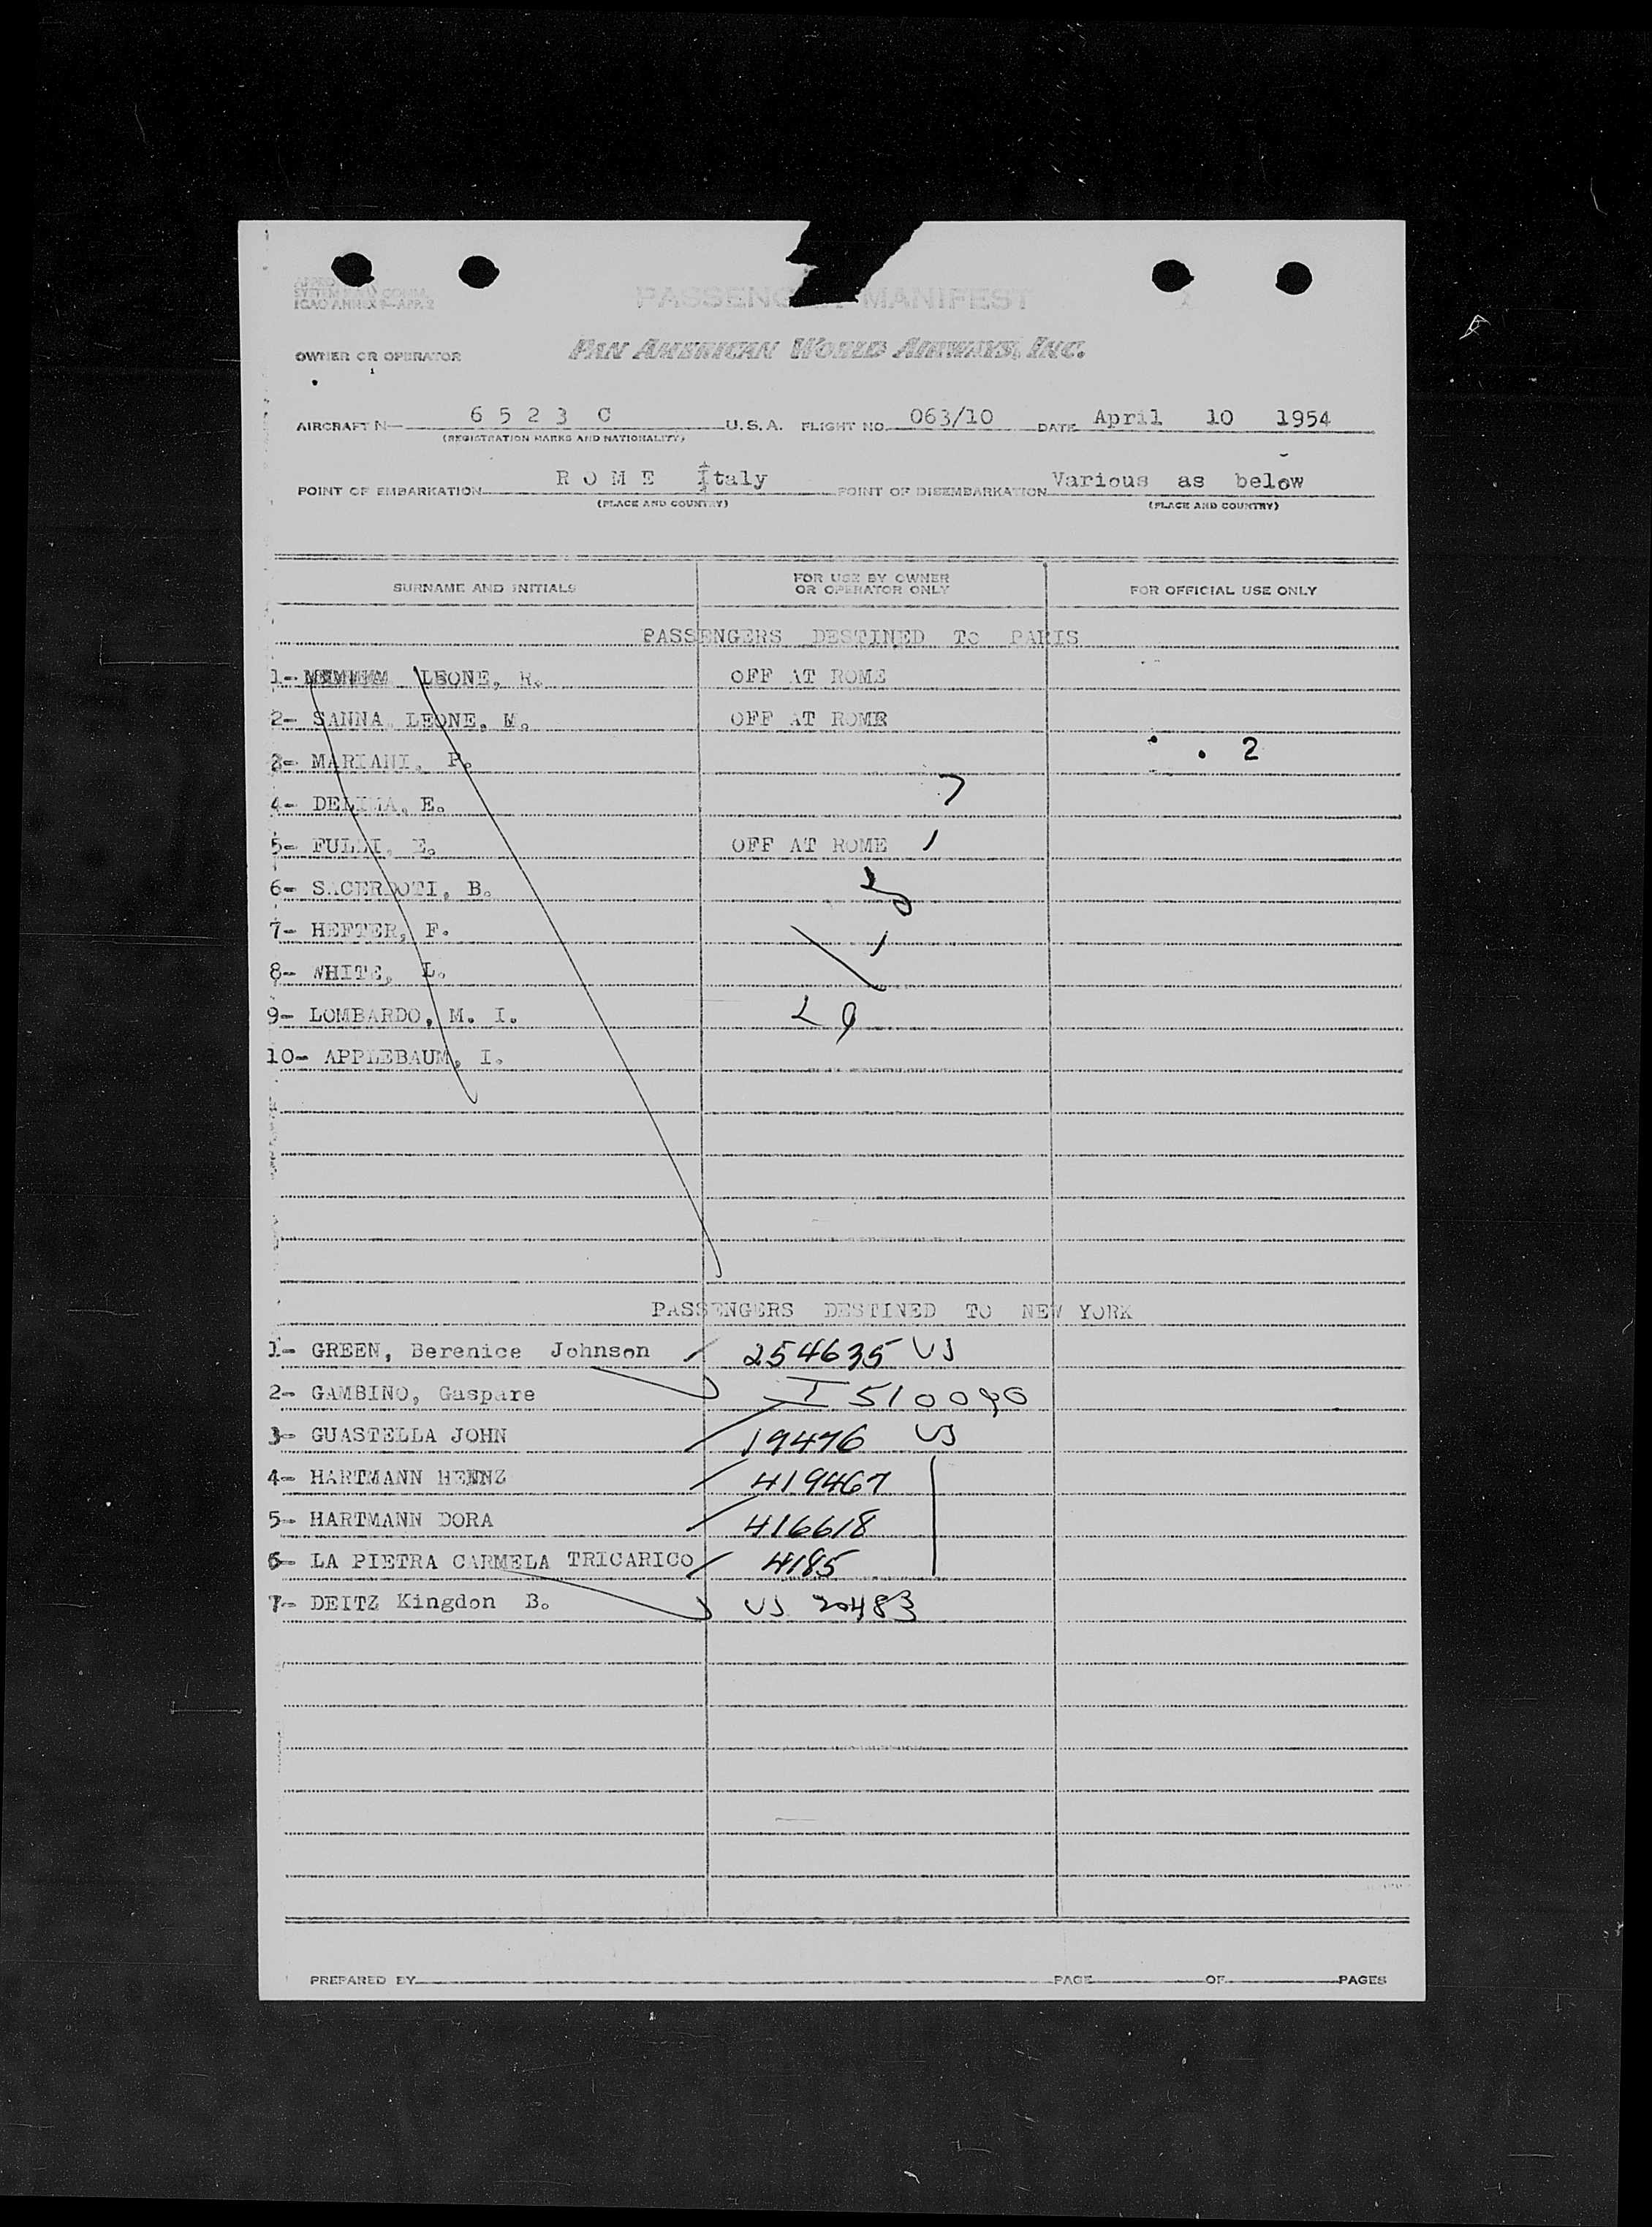 SYSTEM
ICAO ANNEX 9—APP. 2
PASSENG MANIFEST
OWNER OR OPERATOR PAN AMERICAN WORLD AIRWAYS, INC.
AIRCRAFT N— 6 5 2 3 C U.S.A. FLIGHT NO. 063/10 DATE April 10 1954
(REGISTRATION MARKS AND NATIONALITY)
POINT OF EMBARKATION R O M E Italy POINT OF DISEMBARKATION Various as below
(PLACE AND COUNTRY) (PLACE AND COUNTRY)
SURNAME AND INITIALS FOR USE BY OWNER OR OPERATOR ONLY FOR OFFICIAL USE ONLY
PASSENGERS DESTINED TO PARIS
1- LEONE, R. OFF AT ROME
2- SANNA LEONE, M. OFF AT ROME
3- MARIANI, P. 2
4- DELIMA, E. 7
5- E. OFF AT ROME 1
6- SACERDOTI, B.
7- HEFTER, F.
8- WHITE, L.
9- LOMBARDO, M. I.
10- APPLEBAUM, I.
PASSENGERS DESTINED TO NEW YORK
1- GREEN, Berenice Johnson 254635 US
2- GAMBINO, Gaspare I 510090
3- GUASTELLA JOHN 19476 US
4- HARTMANN HENNZ 419467
5- HARTMANN DORA 416618
6- LA PIETRA CARMELA TRICARICO 4185
7- DEITZ Kingdon B. US 20483
PREPARED BY PAGE OF PAGES